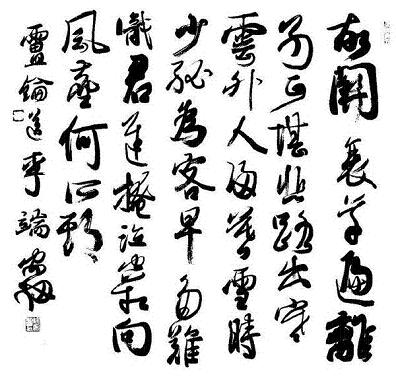 故關衰草遍離
別正堪悲路出寒
雲外人歸暮雪時
少孤為客早多難
識君遲掩泣空相向
風塵何所期
盧綸送李端